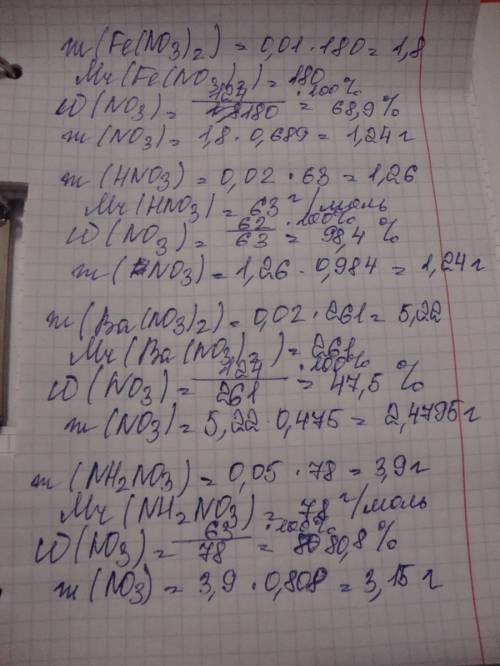 m(Fe(NO3)2) = 0,01 · 180 = 1,8
Mr(Fe(NO3)2) = 180
ω(NO3) = 124/180 · 100% = 68,9%
m(NO3) = 1,8 · 0,689 = 1,24 г
m(HNO3) = 0,02 · 63 = 1,26
Mr(HNO3) = 63 г/моль
ω(NO3) = 62/63 · 100% = 98,4%
m(NO3) = 1,26 · 0,984 = 1,24 г
m(Ba(NO3)2) = 0,02 · 261 = 5,22
Mr(Ba(NO3)2) = 261
ω(NO3) = 124/261 · 100% = 47,5%
m(NO3) = 5,22 · 0,475 = 2,4795 г
m(NH2NO3) = 0,05 · 78 = 3,9 г
Mr(NH2NO3) = 78 г/моль
ω(NO3) = 63/78 · 100% = 80,8%
m(NO3) = 3,9 · 0,808 = 3,15 г